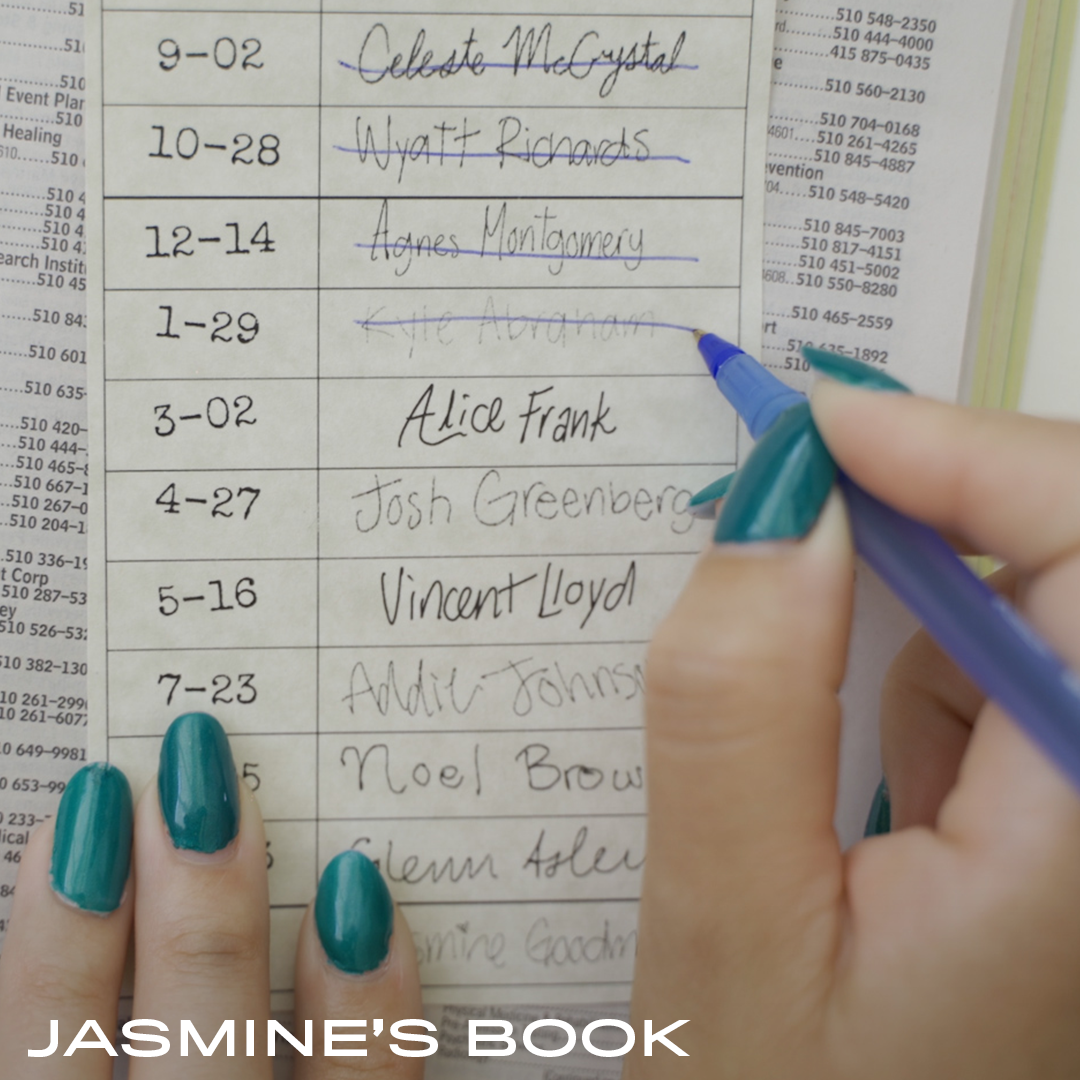 9-02 Celeste McCrystal
10-28 Wyatt Richards
12-14 Agnes Montgomery
1-29 Kyle Abraham
3-02 Alice Frank
4-27 Josh Greenberg
5-16 Vincent Lloyd
7-23 Addie Johns
5 Noel Brow
Glenn
smine Goodm
510 548-2350
510 444-4000
415 875-0435
510 560-2130
510 704-0168
4601 510 261-4265
510 845-4887
evention
04 510 548-5420
510 845-7003
510 817-4151
510 451-5002
608 510 550-8280
510 465-2559
rt
-1892
510
51
51
510
l Event Plan
510
Healing
510
510 4
510 4
510 4
510 4
earch Instit
510 45
510 84
510 601
510 635-
510 420-
510 444-
510 465-
510 667-1
510 267-0
510 204-1
510 336-19
t Corp
510 287-53
ey
510 526-532
510 382-130
10 261-299
10 261-6077
0 649-9981
0 653-99
233-
ical
46
JASMINE'S BOOK